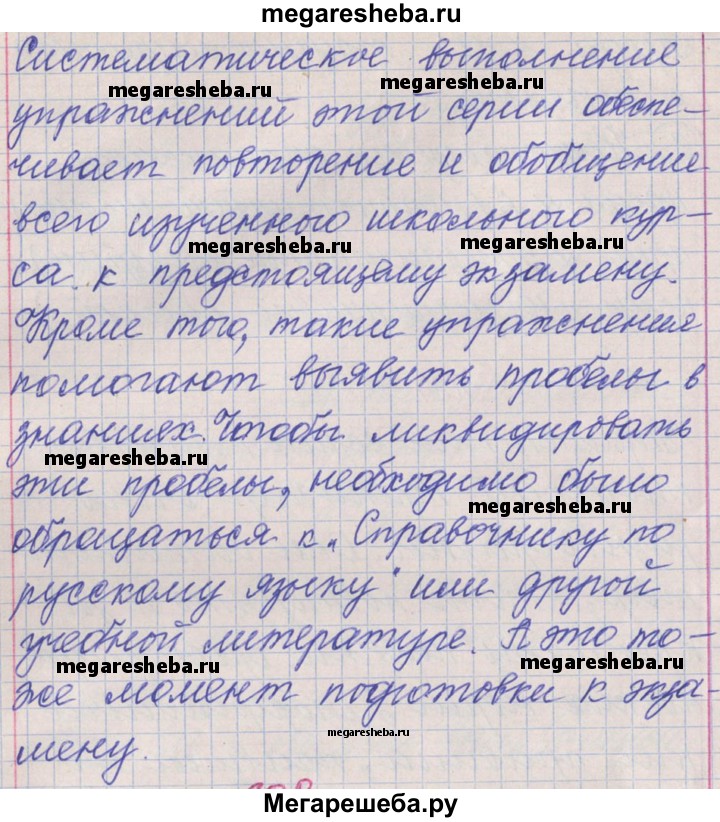 megaresheba.ru
Систематическое выполнение
megaresheba.ru megaresheba.ru
упражнений этой серии обеспе-
чивает повторение и обобщение
всего изученного школьного кур-
megaresheba.ru megaresheba.ru
са к предстоящему экзамену.
Кроме того, такие упражнение
помогают выявить пробелы в
знаниях. Чтобы ликвидировать
megaresheba.ru
эти пробелы, необходимо было
megaresheba.ru
обращаться к „Справочнику по
русскому языку" или другой
учебной литературе. А это то-
megaresheba.ru megaresheba.ru
же момент подготовки к экза-
megaresheba.ru
мену.
Мегарешеба.ру